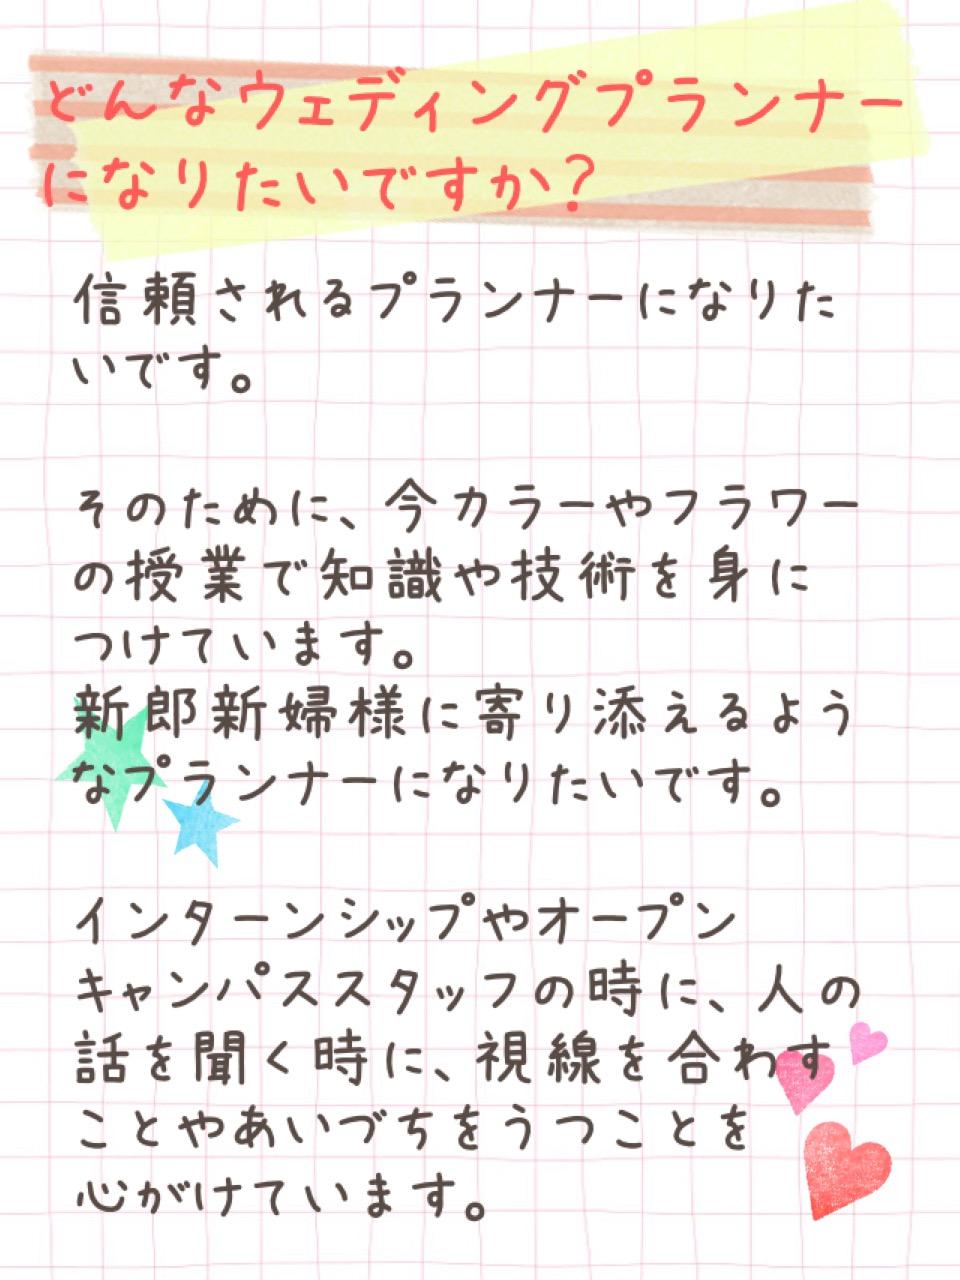 どんなウェディングプランナー
になりたいですか?
信頼されるプランナーになりた
いです。
そのために、今カラーやフラワー
の授業で知識や技術を身に
つけています。
新郎新婦様に寄り添えるよう
なプランナーになりたいです。
インターンシップやオープン
キャンパススタッフの時に、人の
話を聞く時に、視線を合わす
ことやあいづちをうつことを
心がけています。